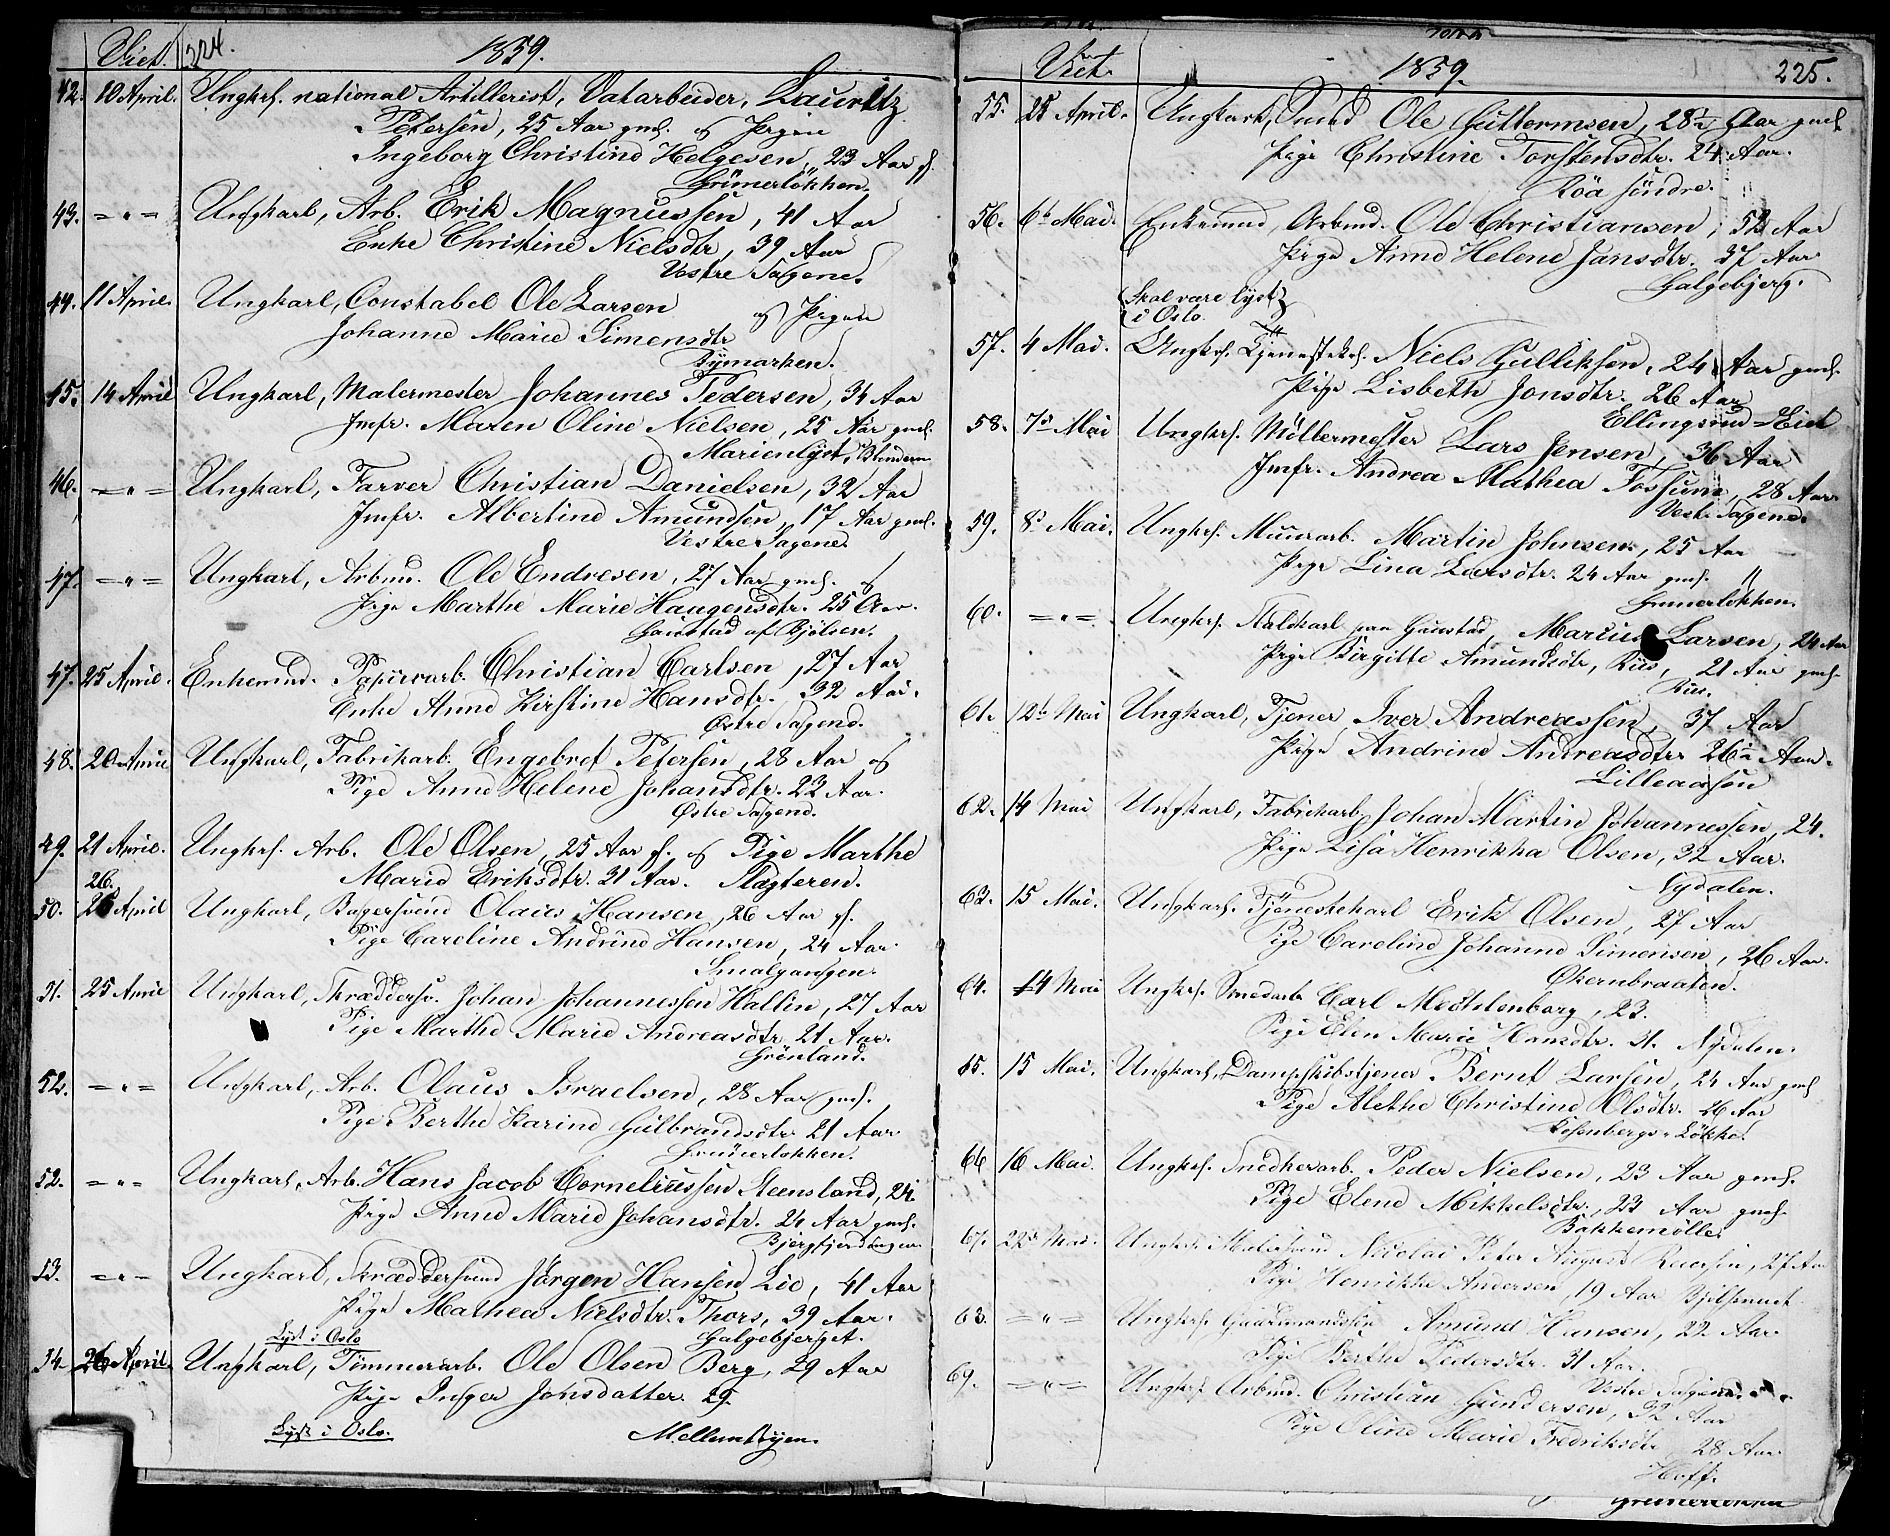 Viet. 224. 1859.
42. 10 April. Ungkrl. national Artillerist, Vatarbeider, Lauritz
Petersen, 25 Aar gml. og Pigen
Ingeborg Christine Helgesen, 23 Aar gl.
Grünerløkken.
43. = " = Ungkarl, Arb. Erik Magnussen, 41 Aar
Enke Christine Nielsdtr, 39 Aar
Vestre Sagene.
44. 11 April. Ungkarl, Constabel Ole Larsen og Pigen
Johanne Marie Simensdtr
Bymarken.
45. 14 April Ungkarl, Malermester Johannes Pedersen, 34 Aar
Jmfr. Maren Oline Nielsen, 25 Aar gml.
Marienlyst, Blindern
46. = " = Ungkarl, Farver Christian Danielsen, 32 Aar
Jmfr. Albertine Amundsen, 17 Aar gml.
Vestre Sagene.
47. = " = Ungkarl, Arbmd. Ole Endresen, 27 Aar gml. og
Pige Marthe Marie Haugensdtr. 25 Aar.
Gaustad af Bjølsen.
47. 25 April. Enkemnd. Papirarb. Christian Carlsen, 27 Aar
Enke Anne Kirstine Hansdtr. 32 Aar.
Østre Sagene.
48. 20 April Ungkarl, Fabrikarb. Engebret Petersen, 28 Aar og
Pige Anne Helene Johansdtr. 22 Aar.
Østre Sagene.
49. 21 April. Ungkrl. Arb. Ole Olsen, 25 Aar gl. og Pige Marthe
Marie Eriksdtr. 31 Aar. Slagteren.
26.
50. April Ungkarl, Bagersvend Olaus Hansen, 26 Aar gl.
Pige Caroline Andrine Hansen, 24 Aar.
Smalgangen.
51. 25 April Ungkarl, Skræddersv. Johan Johannessen Hallin, 27 Aar
Pige Marthe Marie Andreasdtr. 21 Aar.
Grønland.
52. = " = Ungkarl, Arb. Olaus Israelsen, 28 Aar gml.
Pige Berthe Karine Gulbrandsdtr. 21 Aar
Grünerløkken.
52. = " = Ungkarl, Arb. Hans Jacob Corneliussen Steensland, 24.
Pige Anne Marie Johansdtr. 24 Aar gml.
53. = " = Ungkarl, Skræddersvend Jörgen Hansen Lie, 41 Aar
Pige Mathea Nielsdtr. Thors, 39 Aar.
Lyst i Oslo Galgebjerget.
54. 26 April. Ungkarl, Tømmerarb. Ole Olsen Berg, 29 Aar
Pige Inger Johsdatter. 29.
Lyst i Oslo. Mellembyen.
Viet. 1859. 225.
55. 25 April. Ungkarl, Ole Guttormsen, 28½ Aar gml
Pige Christine Torstensdtr. 24 Aar.
Röa söndre.
56. 6te Mai. Enkemnd, Arbmd. Ole Christiansen, 52 Aar
Pige Anne Helene Jansdtr. 37 Aar
Galgebjerg.
Skal være lyst
i Oslo.
57. 4 Mai. Ungkrl. Tjenestekrl. Niels Gulliksen, 24 Aar gml.
Pige Lisbeth Jonsdtr. 26 Aar
Ellingsrud = Eiet
58. 7de Mai Ungkrl. Møllermester Lars Jensen, 36 Aar
Jmfr. Andrea Mathea Fossum, 28 Aar.
Vest. Sagene.
59. 8de Mai. Ungkrl. Muurarb. Martin Johnsen, 25 Aar
Pige Lina Larsdtr. 24 Aar gml.
Grünerløkken.
60. = " = Ungkrl. Staldkarl paa Gaustad, Marius Larsen, 24 Aar
Pige Birgitte Amundsdtr, Riis, 21 Aar gml.
Riis.
61. 12te Mai Ungkarl, Tjener Iver Andreassen, 37 Aar
Pige Andrine Andreasdtr. 26½ Aar.
Lilleaasen
62. 14 Mai Ungkarl, Fabrikarb. Johan Martin Johannessen, 24.
Pige Lisa Henrikka Olsen, 32 Aar.
Nydalen.
63. 15 Mai. Ungkarl. Tjenestekarl Erik Olsen, 27 Aar
Pige Caroline Johanne Simensen, 26 Aar.
Økernbraaten.
64. 14 Mai Ungkrl. Smedarb. Carl Mechlenborg, 23.
Pige Elen Marie Hansdtr. 31. Nydalen.
65. 15 Mai. Ungkarl, Dampskibstjener Bernt Larsen, 24 Aar gml
Pige Alethe Christine Olsdtr. 26 Aar
Rosenbergs Løkke.
66 16 Mai. Ungkrl. Snedkerarb. Peder Nielsen, 23 Aar gml.
Pige Elene Mikkelsdtr., 23 Aar gml.
Bakkemølle
67. 22de Mai. Ungkrl. Malersvend Nicolai Peter August 27 Aar
Pige Henrikke Andersen, 19 Aar
68. = " = Ungkrl. Amund Hansen, 22 Aar.
Pige Berthe Pedersdtr. 31 Aar.
Vestre Sagene.
69. = " = Ungkrl. Arbmd. Christian Gundersen, 32 Aar
Pige Oline Marie Fredriksdtr, 28 Aar.
Hoff.
Grünerløkken